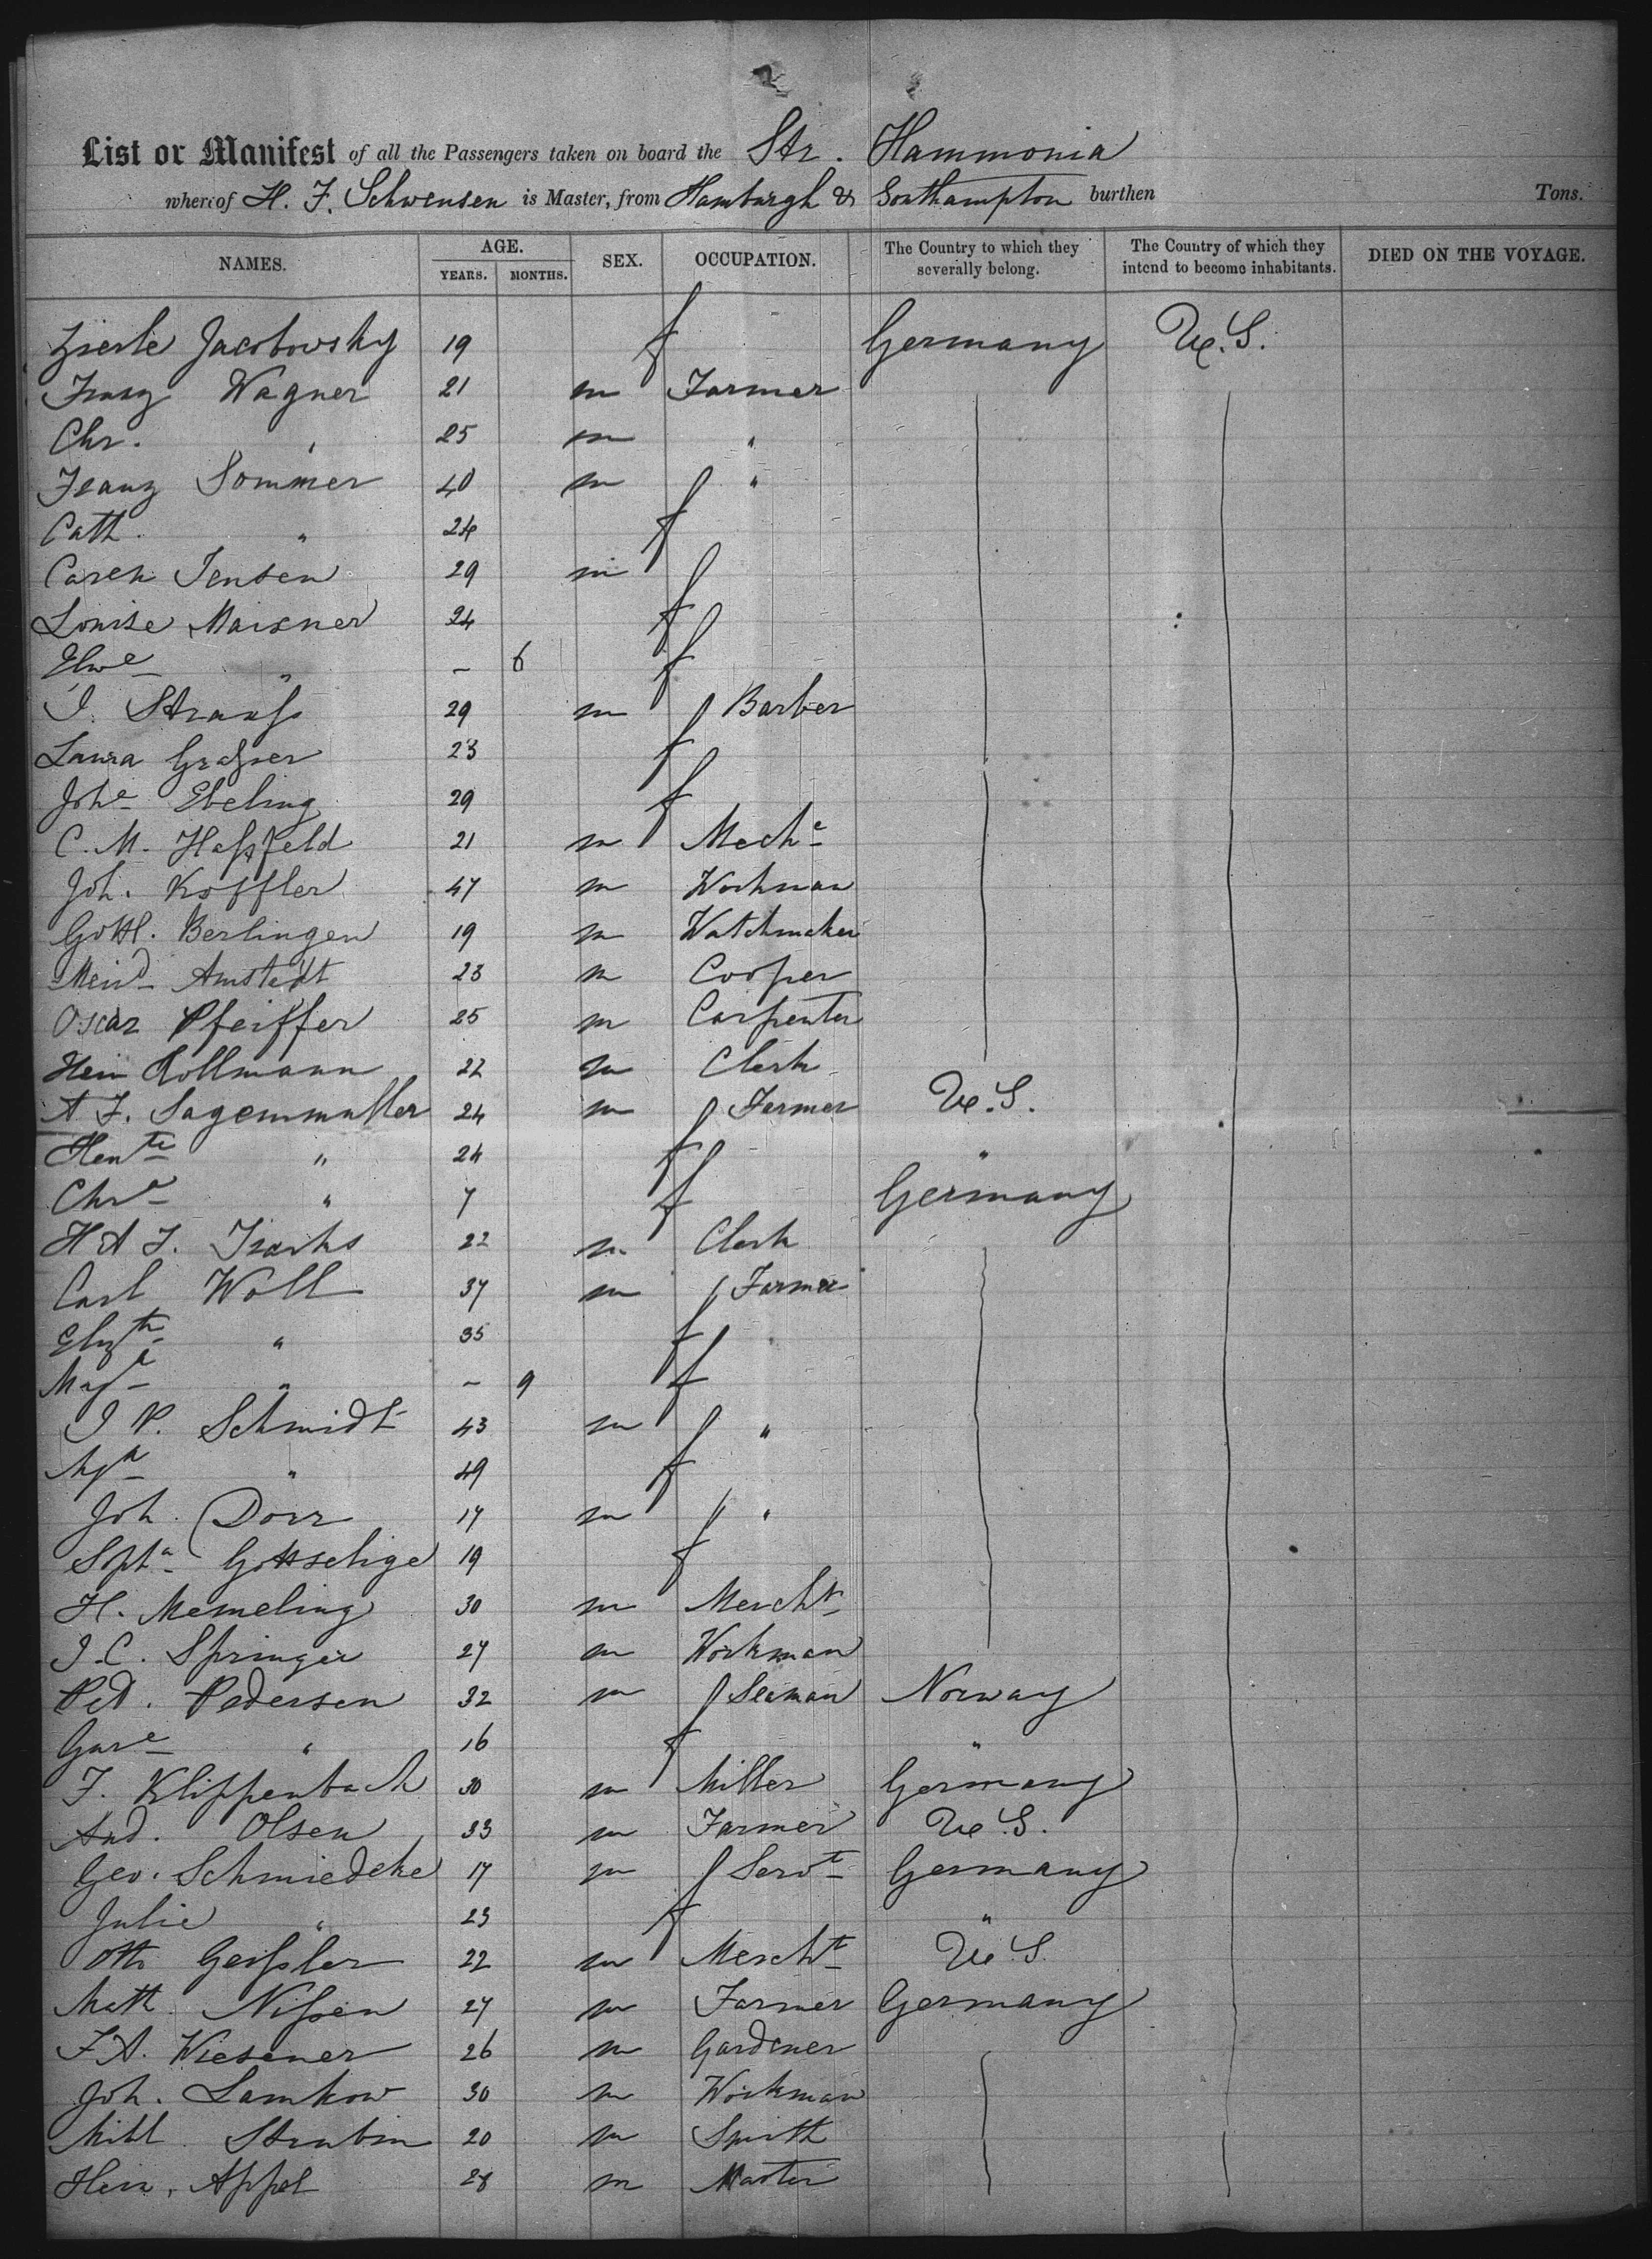 List or Manifest of all the Passengers taken on board the Str. Hammonia
whereof H. F. Schwensen is Master, from Hamburgh & Southampton burthen Tons.
NAMES. AGE. YEARS. MONTHS. SEX. OCCUPATION. The Country to which they severally belong. The Country of which they intend to become inhabitants. DIED ON THE VOYAGE.
Jacobowsky 19 f Germany U.S.
Franz Wagner 21 m Farmer
Chr. " 25 m "
Franz Sommer 40 m "
Cath. " 24 f
Caren Jensen 29 m
Louise Maisner 24 f
Elwe " – 6 f
J. Strauss 29 m Barber
Laura Grasser 23 f
Johe Ebeling 29 f
C. M. Hassfeld 21 m Meche
Joh. Koffler 47 m Workman
Gottl. Berlingen 19 m Watchmaker
Meind Amstedt 23 m Cooper
Oscar Pfeiffer 25 m Carpenter
Hein Kollmann 22 m Clerk
A F. Sagemmuller 24 m Farmer U.S.
Hentte " 24 f "
Chre " 7 f Germany
H A F. Tracks 22 m Clerk
Carl Woll 37 m Farmer
Elizth " 35 f
" – 9 f
J P. Schmidt 43 m "
" 49 f
Joh. Dorr 17 m "
Spha Gottschige 19 f
H. Memeling 30 m Mercht
J. C. Springer 27 m Workman
Ped. Pedersen 32 m Seaman Norway
Gure " 16 f "
F. Klippenbach 30 m Miller Germany
And. Olsen 33 m Farmer U.S.
Geo. Schmiedeke 17 m Servt Germany
Julie " 23 f "
Otto Geissler 22 m Mercht U S.
Math. Nissen 27 m Farmer Germany
F. A. Wiesener 26 m Gardener
Joh. Lamkow 30 m Workman
Mihl Strubin 20 m Smith
Hein. Appel 28 m Master